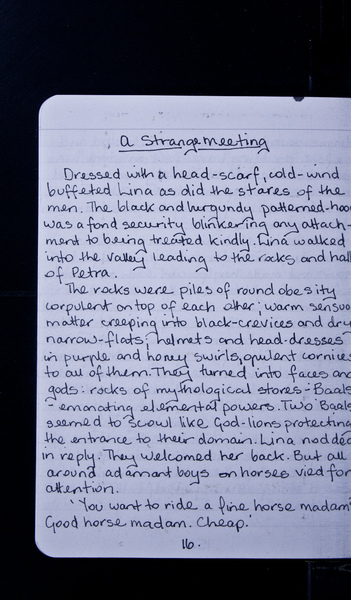 A Strange meeting
Dressed with a head-scarf, cold-wind
buffeted Lina as did the stares of the
men. The black and burgundy patterned-hoo
was a fond security blinkering any attach-
ment to being treated kindly. Lina walked
into the valley leading to the rocks and hall
of Petra.
The rocks were piles of round obesity
corpulent on top of each other; warm sensuo
matter creeping into black-crevices and dry
narrow-flats; helmets and head-dresses
in purple and honey swirls, opulent cornices
to all of them. They turned into faces and
gods: rocks of mythological stores - Baals
- emanating elemental powers. Two Baals
seemed to scowl like God-lions protecting
the entrance to their domain. Lina nodded
in reply. They welcomed her back. But all
around adamant boys on horses vied for
attention.
'You want to ride a fine horse madam'
Good horse madam. Cheap.'
16.